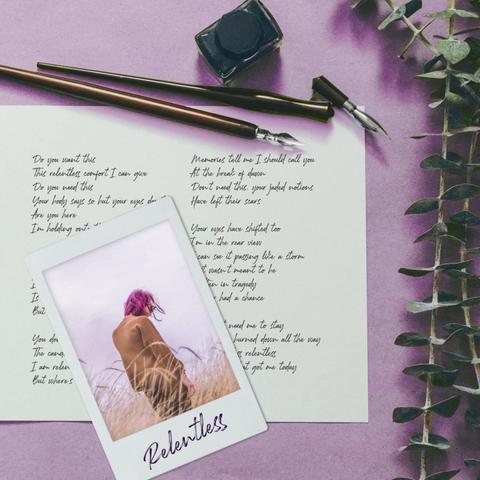 Do you want this
This relentless comfort I can give
Do you need this
Your body says so but your eyes do
Are you here
I'm holding
But
You do
The
I am
But where's
Memories tell me I should call you
At the break of dawn
Don't need this, your jaded notions
Have left their scars
Your eyes have shifted too
I'm in the rear view
can see it passing like a storm
wasn't meant to be
in tragedy
had a chance
need me to stay
burned down all the way
relentless
got me today
Relentless